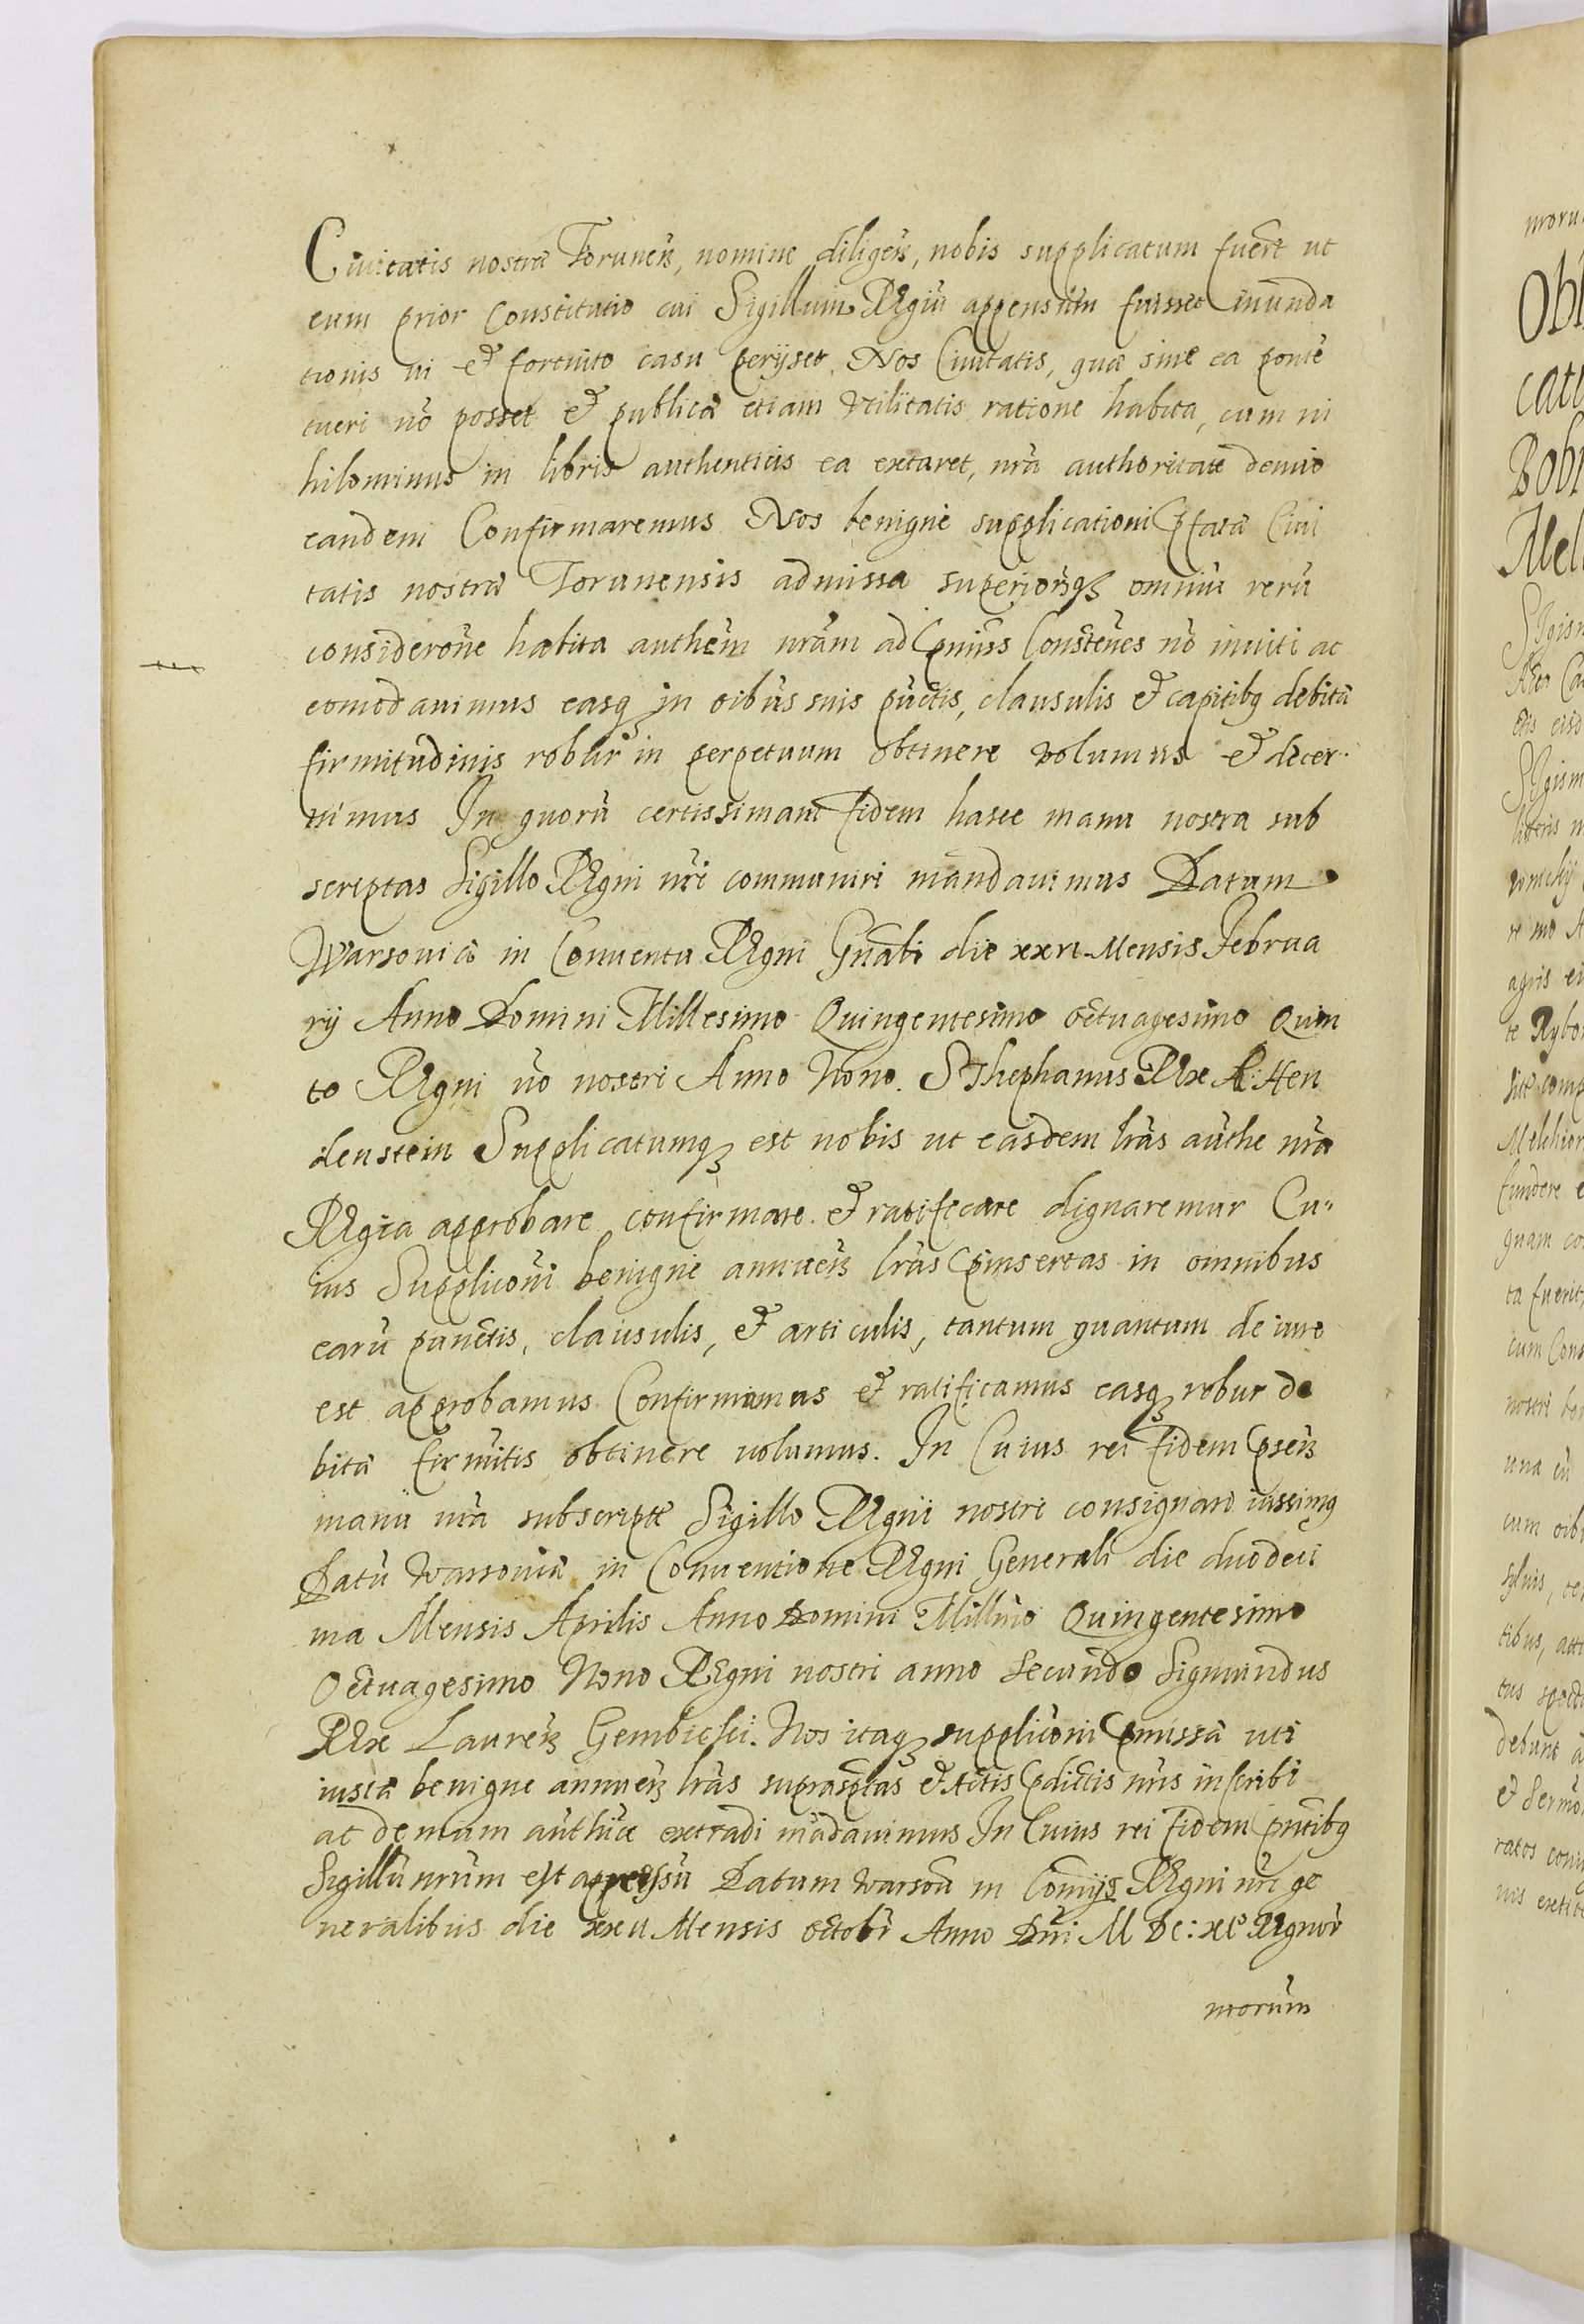 Ciuitatis nostræ Toruneñ, nomine diligeñ, nobis supplicatum fuerit ut
cum prior Constitutio cui Sigillum Regiũ appensum fuisset inunda
tionis ui et fortuito casu perijset. Nos Ciuitatis, quæ sine ea ponte
tueri nõ posset et publicæ etiam utilitatis ratione habita, cum ni
hilominus in libris authenticis ea extaret, nrã authoritate denuo
eandem Confirmaremus Nos benigne supplicationi pfatæ Ciui
tatis nostræ Torunensis admissa superiorũqꝫ omniũ rerũ
consideroñe habita authem nrãm ad pmiss Constĩones nõ inuiti ac
comodauimus easqꝫ in oibus suis pũctis, clausulis et capitibꝫ debitũ
firmitudinis robur in perpetuum obtinere volumus et decer
nimus In quorũ certissimam fidem hasce manu nostra sub
scriptas Sigillo Regni nri communiri mandauimus Datum
Warsouiæ in Conuentu Regni Gnãli die xxvi Mensis Februa
rij Anno Domini Millesimo Quingentesimo octuagesimo Quin
to Regni uõ nostri Anno Nono. SThephanus Rex R: Hen
denstein Supplicatumqꝫ est nobis ut easdem lrãs authe nrã
Regia approbare confirmare et ratificare dignaremur Cu"
ius Supplicõni benigne annueñ lrãs pinsertas in omnibus
earũ punctis, clausulis, et articulis, tantum quantum de iure
est approbamus Confirmamus et ratificamus easqꝫ robur de
bitæ firmitis obtinere uolumus. In Cuius rei fidem pseñ
manu nrã subscriptæ Sigillo Regni nostri consignari iussimꝰ
Datũ Warsouiæ in Conuentione Regni Generali die duodeci
ma Mensis Aprilis Anno Domini Millmo Quingentesimo
Octuagesimo Nono Regni nostri anno Secundo Sigmundus
Rex Laureñ Gembicki. Nos itaqꝫ supplicõni pmissæ uti
iustæ benigne annueñ lrãs suprasptas et Actis pdictis nrĩs inscribi
ac demum authice extradi mãdauimus In Cuius rei fidem pntibꝫ
Sigillũ nrũm est appensũ Datum Warsou in Comijs Regni nri ge
neralibus die xxii Mensis octobr Anno Dni M Dc: xlº Regnor
morum